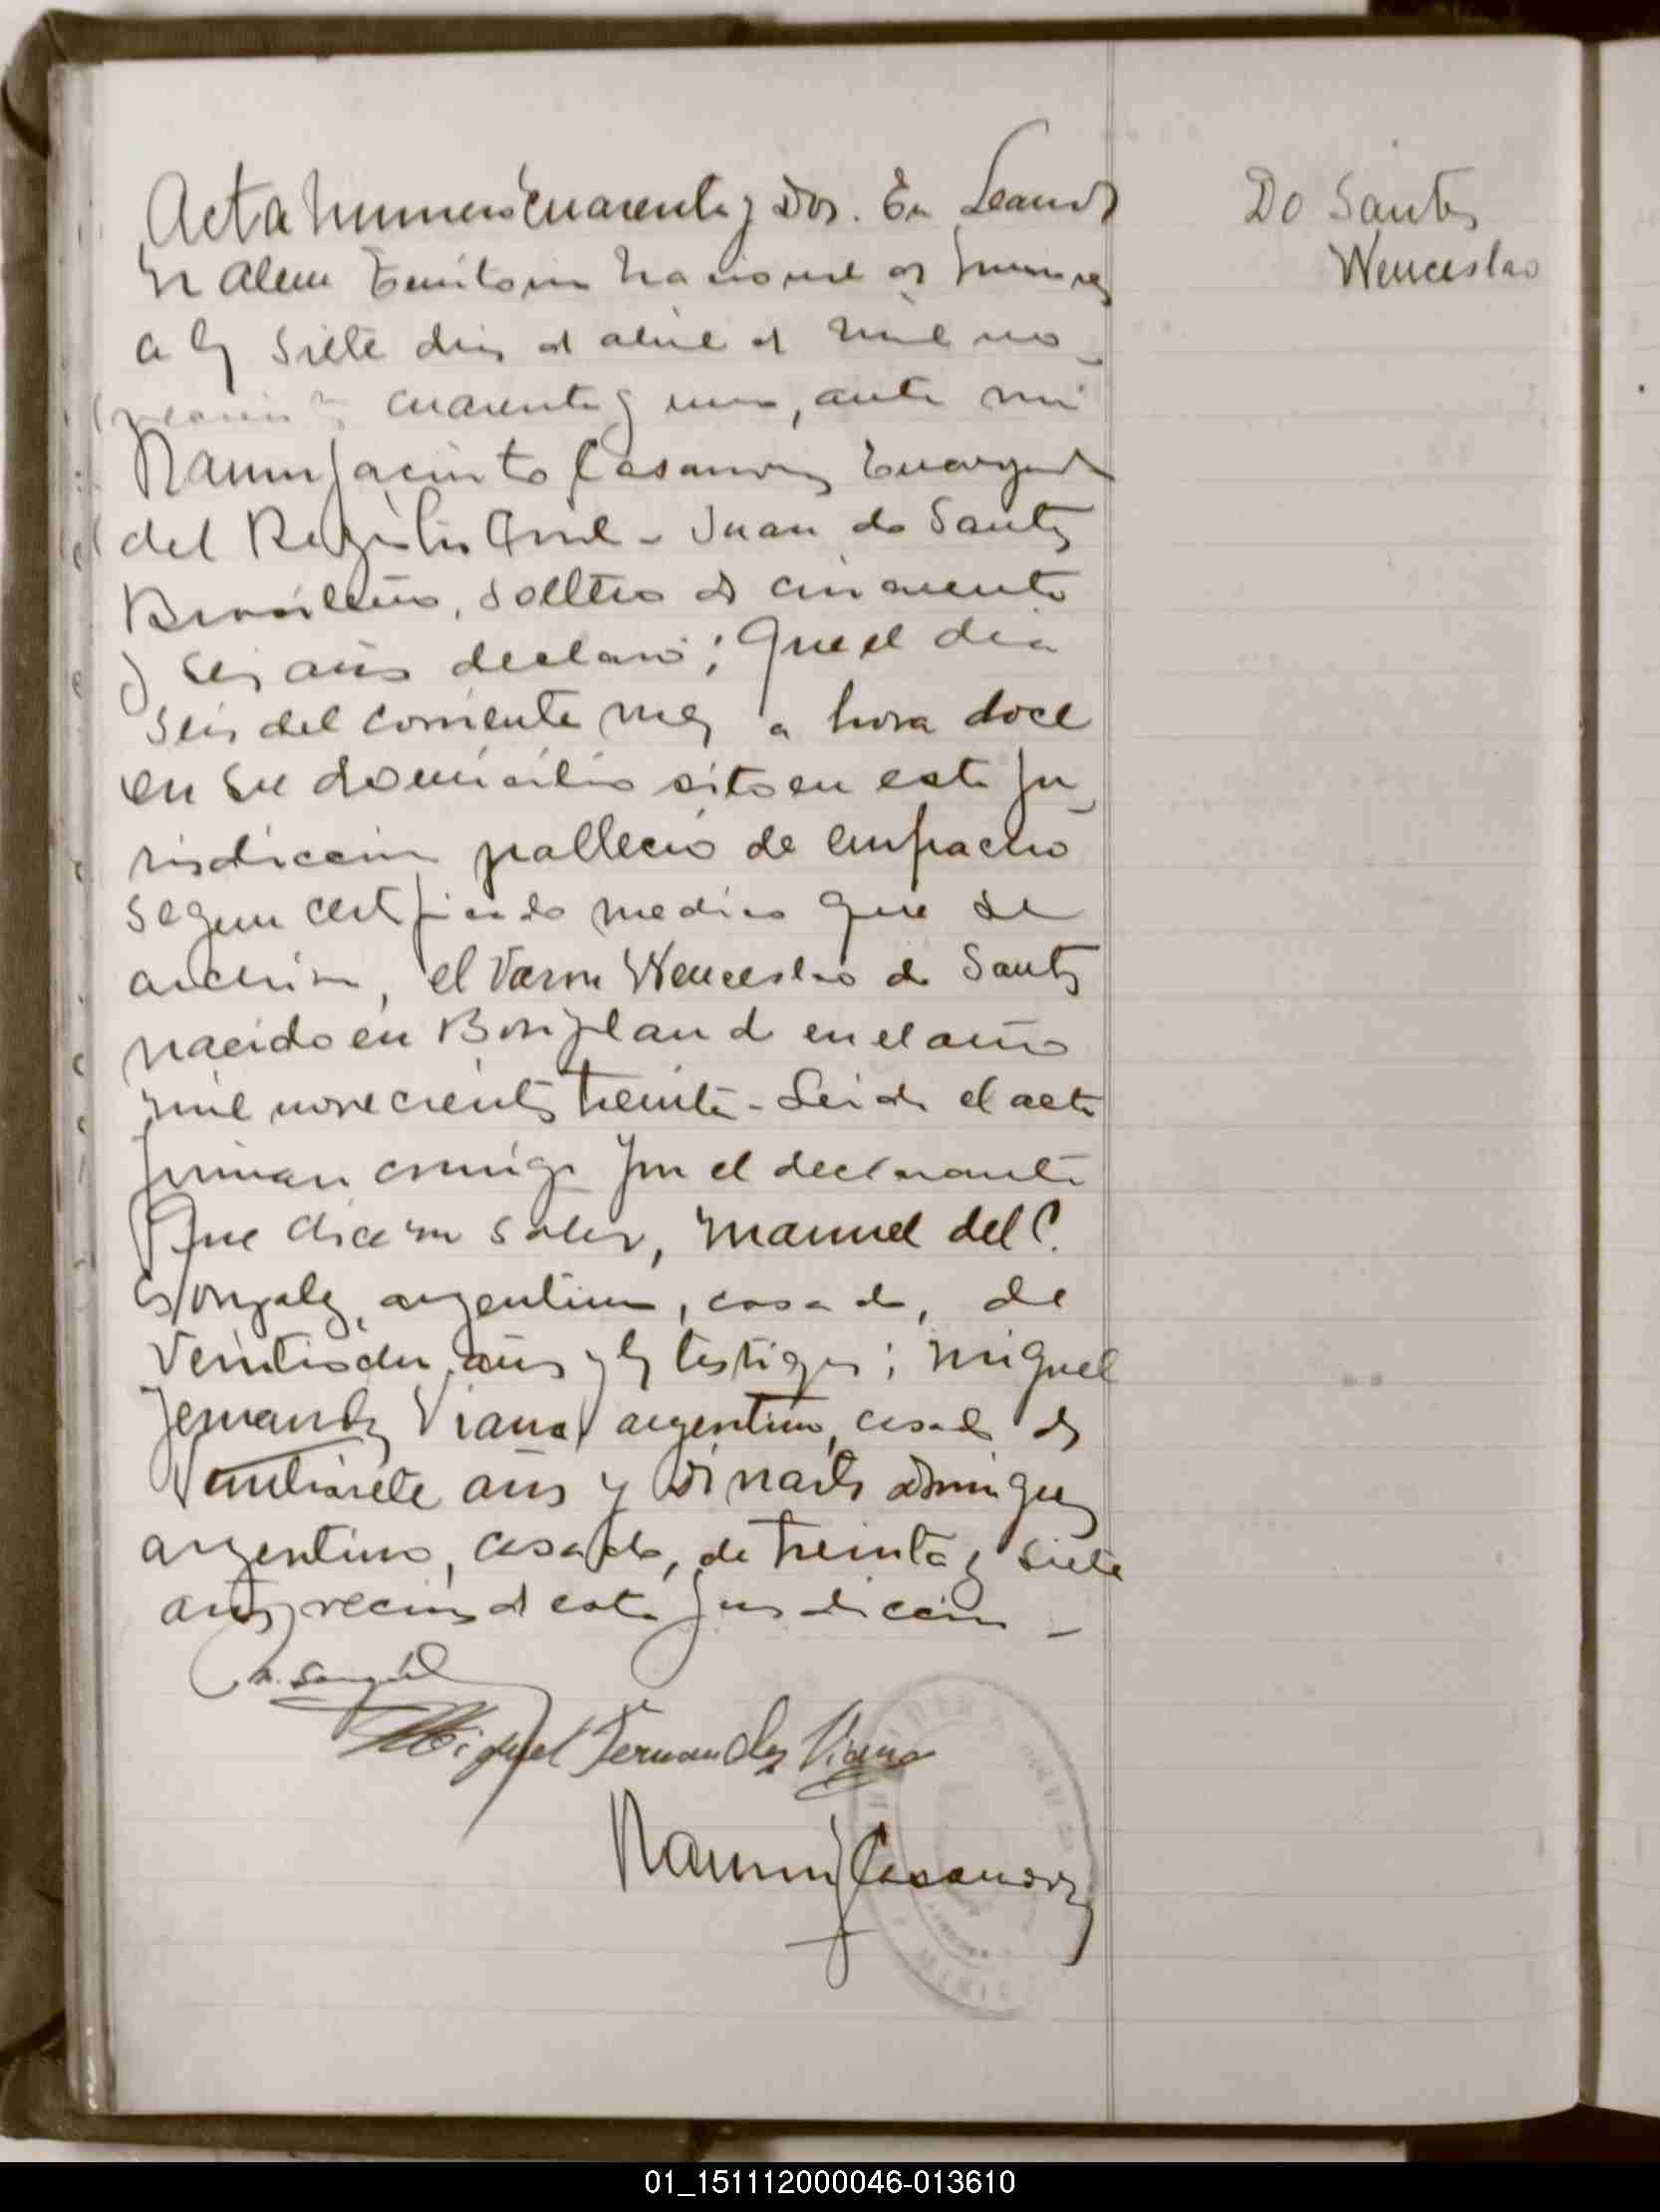 Acta numero cuarenta y Dos. En Leandro
N Alem Territorio Nacional de Misiones
a los siete dias de abril de mil no_
vecientos cuarenta y uno, ante mi
Ramon Jacinto Casanova Encargado
del Registro Civil - Juan do Santos
Brasileño, solltero de cincuenta
y seis años declaro; Que el dia
seis del corriente mes a hora doce
en su domicilio sito en esta Ju_
risdiccion palleció de empacho
segun certificado medico que se
archiva, el Varon Wenceslao do Santos
nacido en Bonpland en el año
mil novecientos treinta - Leida el acta
firman conmigo por el declarante
Que dice no saber, Manuel del C.
Gonzalez, argentino, casado, de
Veintiodos años y los testigos; Miguel
Fernandez Viana argentino, casado de
Veintisiete años y Dinarte Dominguez
argentino, casado, de treinta y siete
años vecinos de esta Jurisdiccion _
Miguel Fernandez Viana
Ramon J Casanova
Do Santos
Wenceslao
01_151112000046-013610